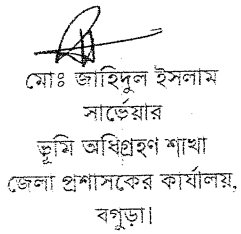 মোঃ জাহিদুল ইসলাম
সার্ভেয়ার
ভূমি অধিগ্রহণ শাখা
জেলা প্রশাসকের কার্যালয়,
বগুড়া।